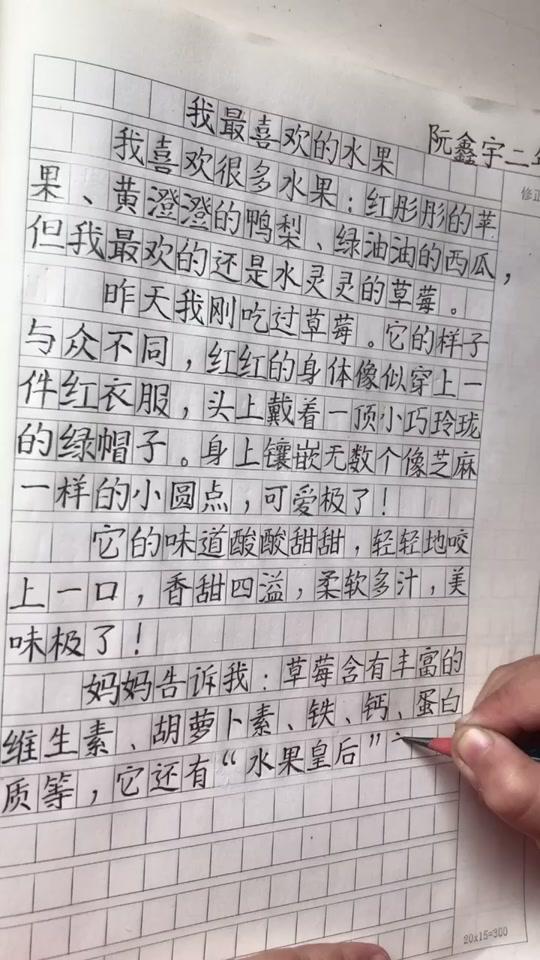 我最喜欢的水果
阮鑫宇二
我喜欢很多水果：红彤彤的苹
修正
果、黄澄澄的鸭梨、绿油油的西瓜，
但我最欢的还是水灵灵的草莓。
昨天我刚吃过草莓。它的样子
与众不同，红红的身体像似穿上一
件红衣服，头上戴着一顶小巧玲珑
的绿帽子。身上镶嵌无数个像芝麻
一样的小圆点，可爱极了！
它的味道酸酸甜甜，轻轻地咬
上一口，香甜四溢，柔软多汁，美
味极了！
妈妈告诉我：草莓含有丰富的
维生素、胡萝卜素、铁、钙、蛋白
质等，它还有“水果皇后”
20x15=300